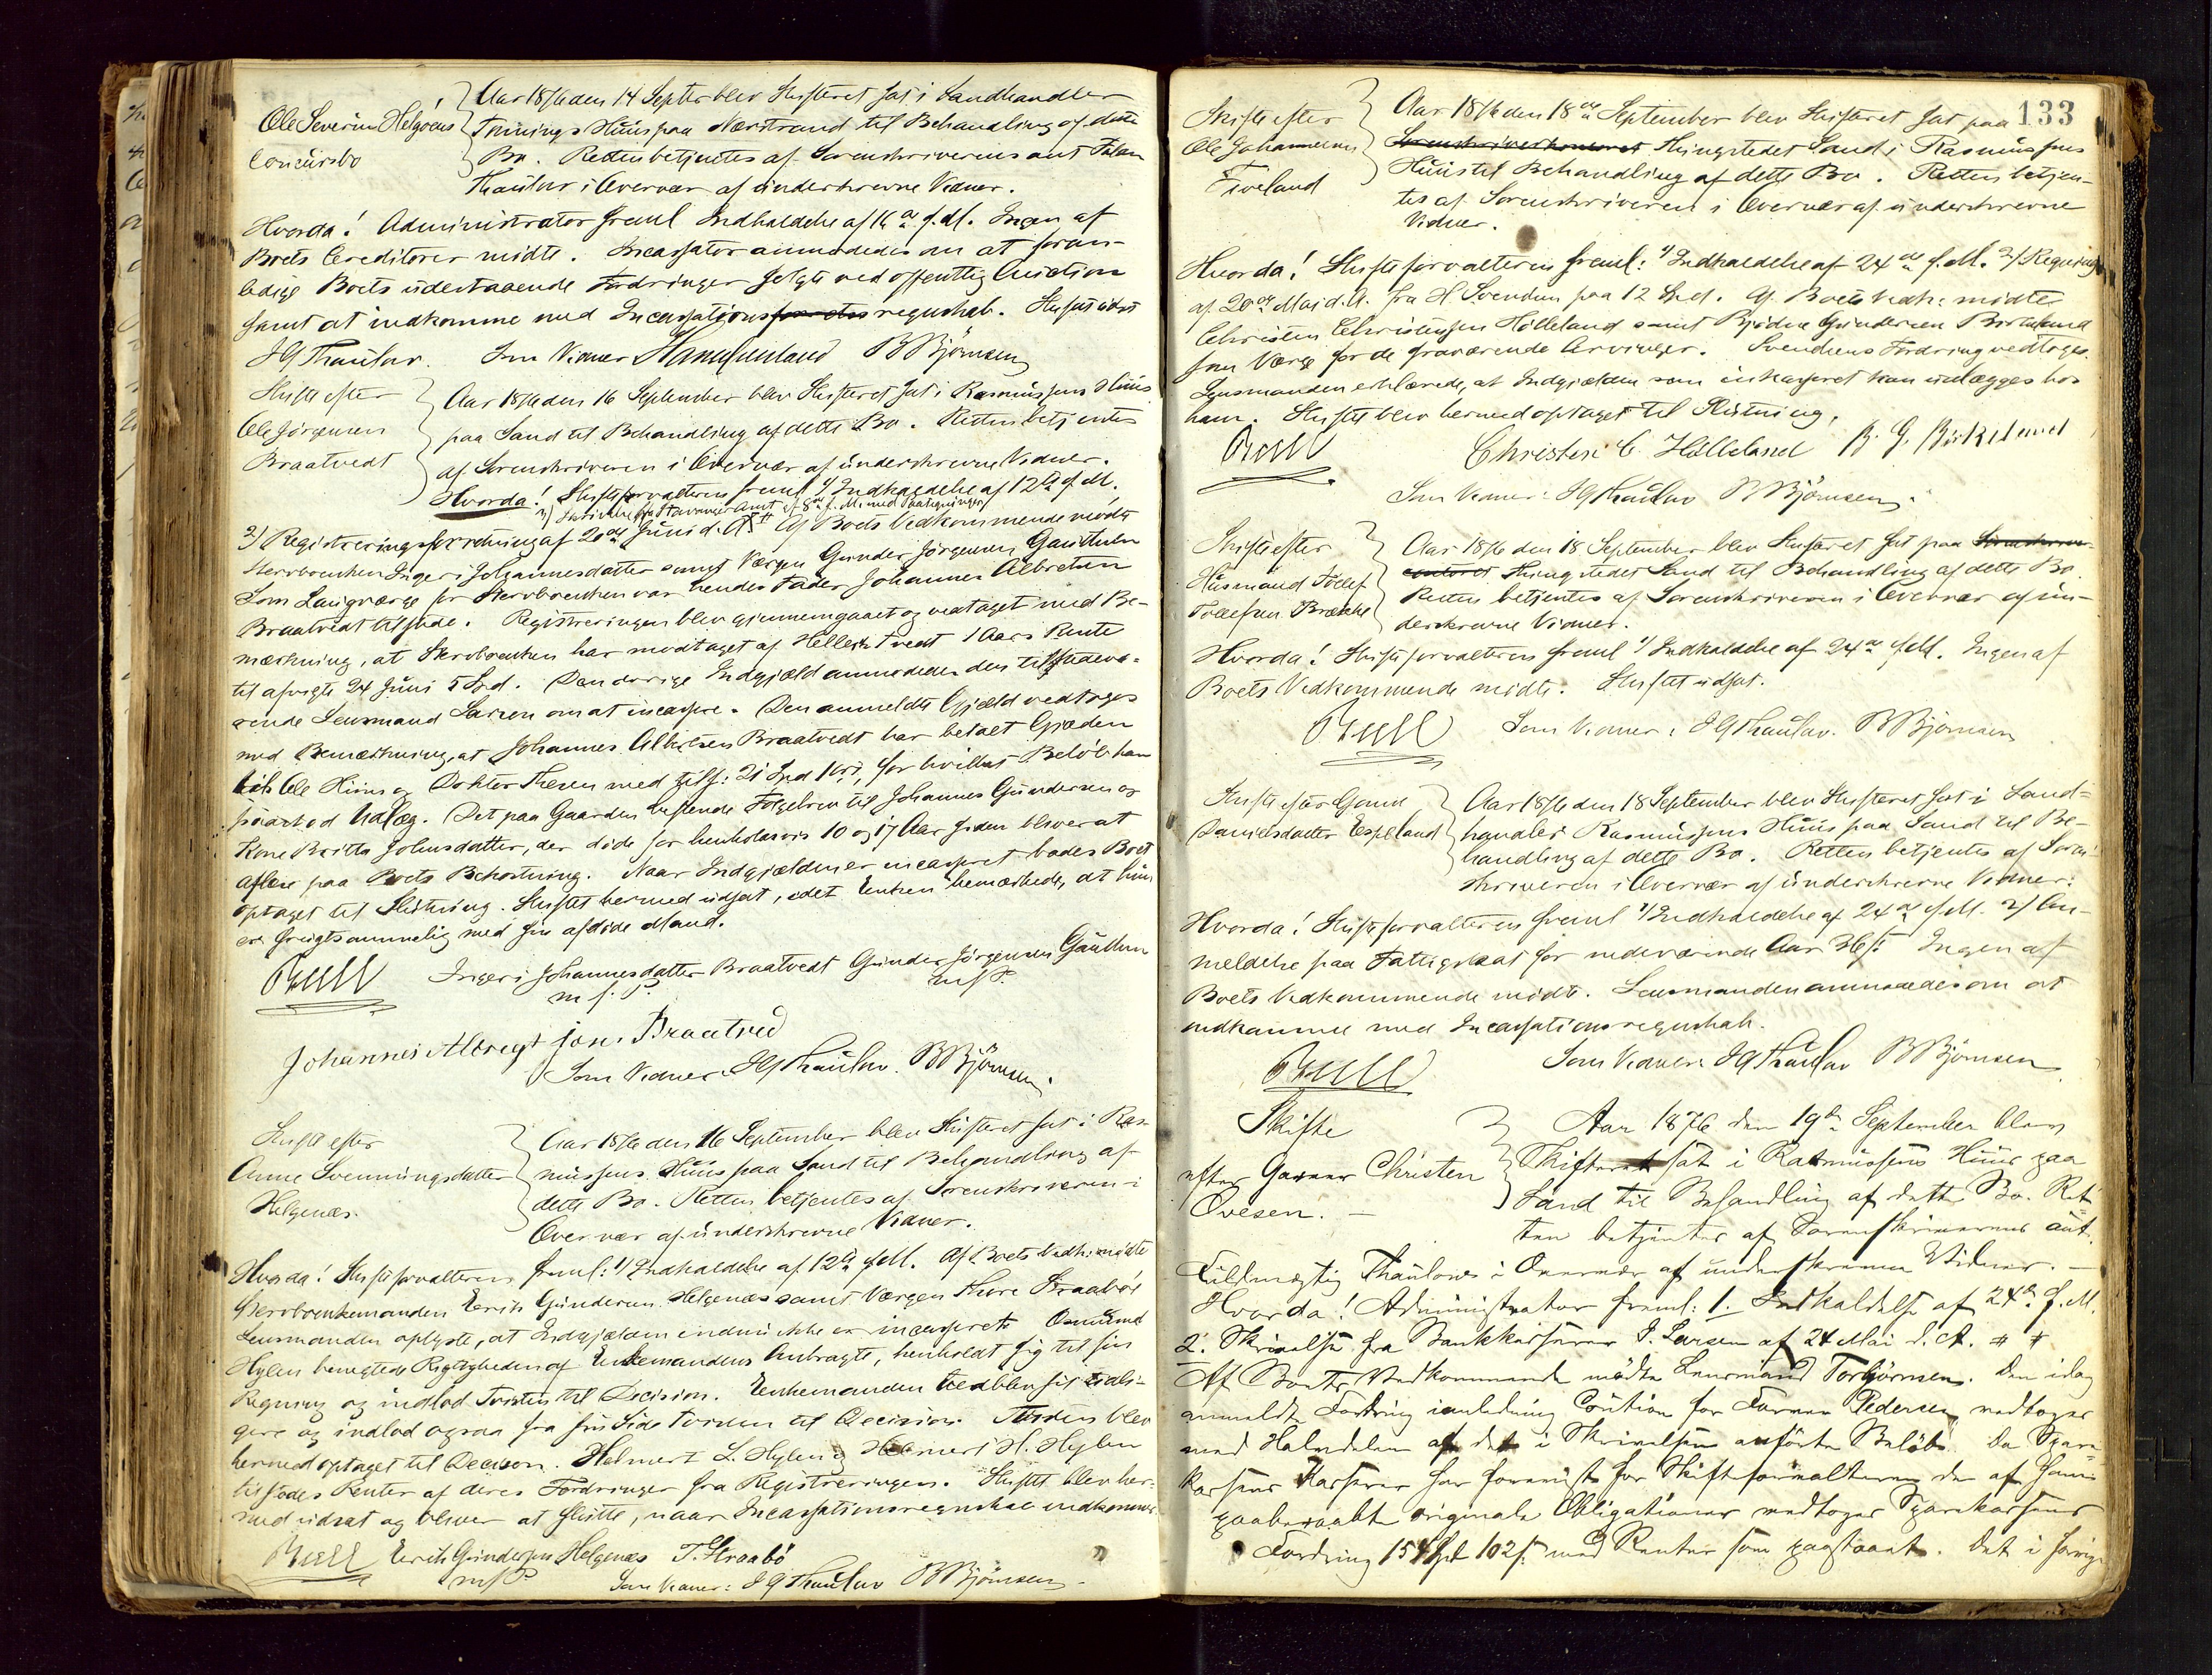 Ole Severin Helgöens
Concursbo
Aar 1876 den 14 Septbr blev Skifteret sat i Landhandler
Tennings Huus paa Nærstrand til Behandling af dette
Bo. Retten betjentes af Sorenskriverens aut Fuldm
Thaulow i Overvær af underskrevne Vidner.
Hvorda! Administrator freml Indkaldelse af 16de f. M. Ingen af
Boets Creditorer mødte. Incassator anmodedes om at foran-
ledige Boets udestaaende Fordringer solgte ved offentlig Auction
samt at indkomme med Incassations regnskab. Skiftet udsat
J G Thaulow. Som Vidner B Björnsen
Skifte efter
Ole Jörgensen
Braatvedt
Aar 1876 den 16 September blev Skifteret sat i Rasmussens Huus
paa Sand til Behandling af dette Bo. Retten betjentes
af Sorenskriveren i Overvær af underskrevne Vidner.
Hvorda! Skifteforvalteren freml 1) Indkaldelse af 12te f. M.
3) Skrivelse fra Stavanger Amt af 8de f. M. med Paategninger
2) Registreringsforretning af 20de Juni d. A. Af Boets Vedkommende mødte
Stervboenken Ingeri Johannesdatter samt Værgen Gunder Jörgensen Gautun
Som Laugværge for Stervboenken var hendes Fader Johannes Albretsen
Braatvedt tilstede. Registreringen blev gjennemgaaet og vedtaget med Be-
mærkning, at Stervboenken har modtaget af Helleik Tvedt 1 Aars Rente
til afvigte 24 Juni 5 Spd. Den øvrige Indgjæld anmodedes den tilstedevæ-
rende Lensmand Larsen om at incassere. Den anmeldte Gjæld vedtoges
med Bemærkning, at Johannes Albretsen Braatvedt har betalt Gjælden
til Ole Hiim og Doktor med tils: 21 Spd 1 ort, for hvilket Beløb han
paastod Udlæg. Det paa Gaarden heftende Folgebrev til Johannes Gundersen og
Kone Britta Johnsdatter, der døde for henholdsvis 10 og 17 Aar siden bliver at
aflese paa Boets Bekostning. Naar Indgjælden er incasseret bades Boet
optaget til Slutning. Skiftet hermed udsat, idet Enken bemærkede, at hun
er frugtsommelig med sin afdøde Mand.
Ingeri Johannesdatter Braatvedt Gunder Jörgensen Gautun
m. f. P. m f P.
Johannes Albregt jons Braatved
Som Vidner: J G Thaulow. B Björnsen.
Skifte efter
Anne Svenningsdatter
Helgenæs.
Aar 1876 den 16 September blev Skifteret sat i Ras-
mussens Huus paa Sand til Behandling af
dette Bo. Retten betjentes af Sorenskriveren i
Overvær af underskrevne Vidner.
Hvorda! Skifteforvalteren freml: 1) Indkaldelse af 12te f. M. Af Boets Vedk: mødte
Stervboenkemanden Erik Gundersen Helgenæs samt Værgen Thore Straabø.
Lensmanden oplyste, at Indgjælden endnu ikke er incasseret. Osmund
Hylen benegtede Rigtigheden af Enkemandens Anbragte, henholdt sig til sin
Regning og indlod Tvisten til Decision. Enkemanden vedblev sit tidli-
gere og indlod ogsaa fra sin Side Tvisten til Decision. Tvisten blev
hermed optaget til Decision. Helmert L. Hylen og H. Hylen
tilstodes Renter af deres Fordringer fra Registreringen. Skiftet blev her-
med udsat og bliver at slutte, naar Incassationsregnskab indkommer.
Erik Gundersen Helgenæs T. Straabö
m f P
Som Vidner: J G Thaulow B Björnsen
133
Skifte efter
Ole Johannesen
Tveland
Aar 1876 den 18de September blev Skifteret sat paa
Sorenskriverkontoret Thingstedet Sand i Rasmussens
Huus til Behandling af dette Bo. Retten betjen-
tes af Sorenskriveren i Overvær af underskrevne
Vidner.
Hvorda! Skifteforvalteren freml: 1) Indkaldelse af 24de f. M. 2) Regning
af 20de Mai d. A. fra H Svendsen paa 12 Spd. Af Boets Vedk: mødte
Christen Christensen Hølleland samt Gundersen Birkeland
som Værge for de fraværende Arvinger. Svendsens Fordring vedtoges.
Lensmanden erklærede, at Indgjælden som inkasseret kan udlægges hos
ham. Skiftet blev hermed optaget til Slutning.
Christen C. Hölleland B. G. Birkeland
Som Vidner: J G Thaulow B Björnsen.
Skifte efter
Huusmand Tollef
Tollefsen Brække
Aar 1876 den 18 September blev Skifteret sat paa Sorenskriver-
contoret Thingstedet Sand til Behandling af dette Bo.
Retten betjentes af Sorenskriveren i Overvær af un-
derskrevne Vidner.
Hvorda! Skifteforvalteren freml 1) Indkaldelse af 24de f. M. Ingen af
Boets Vedkommende mødte. Skiftet udsat.
Som Vidner: J G Thaulow. B Björnsen
Skifte efter Gouri
Danielsdatter Espeland
Aar 1876 den 18 September blev Skifteret sat i Land-
handler Rasmussens Huus paa Sand til Be-
handling af dette Bo. Retten betjentes af Soren-
skriveren i Overvær af underskrevne Vidner:
Hvorda! Skifteforvalteren freml 1) Indkaldelse af 24de f. M. 2) An-
meldelse paa Fattigskat for nedeværende Aar 36 s. Ingen af
Boets Vedkommende mødte. Lensmanden anmodedes om at
indkomme med Incassationsregnskab.
Som Vidner: J G Thaulow B Björnsen
Skifte
efter Garver Christen
Ovesen. —
Aar 1876 den 19de September blev
Skifteret sat i Rasmussens Huus paa
Sand til Behandling af dette Bo. Ret-
ten betjentes af Sorenskriverens aut.
Fuldmægtig Thaulow i Overvær af underskrevne Vidner. —
Hvorda! Administrator freml: 1. Indkaldelse af 24de f. M.
2. Skrivelse fra Bankkasserer J. Larsen af 24 Mai d. A.
Af Boets Vedkommende mødte Lensmand Torbjörnsen. Den idag
anmeldte Fordring i anledning Caution for Pedersen vedtoges
med Halvdelen af det i Skrivelsen anførte Beløb. Da Spare-
kassens Kasserer har forevist for Skifteforvalteren de af ham
paaberaabte originale Obligationer vedtoges Sparekassens
Fordring 154 Spd 102 s. med Renter som paastaaet. Det i forrige